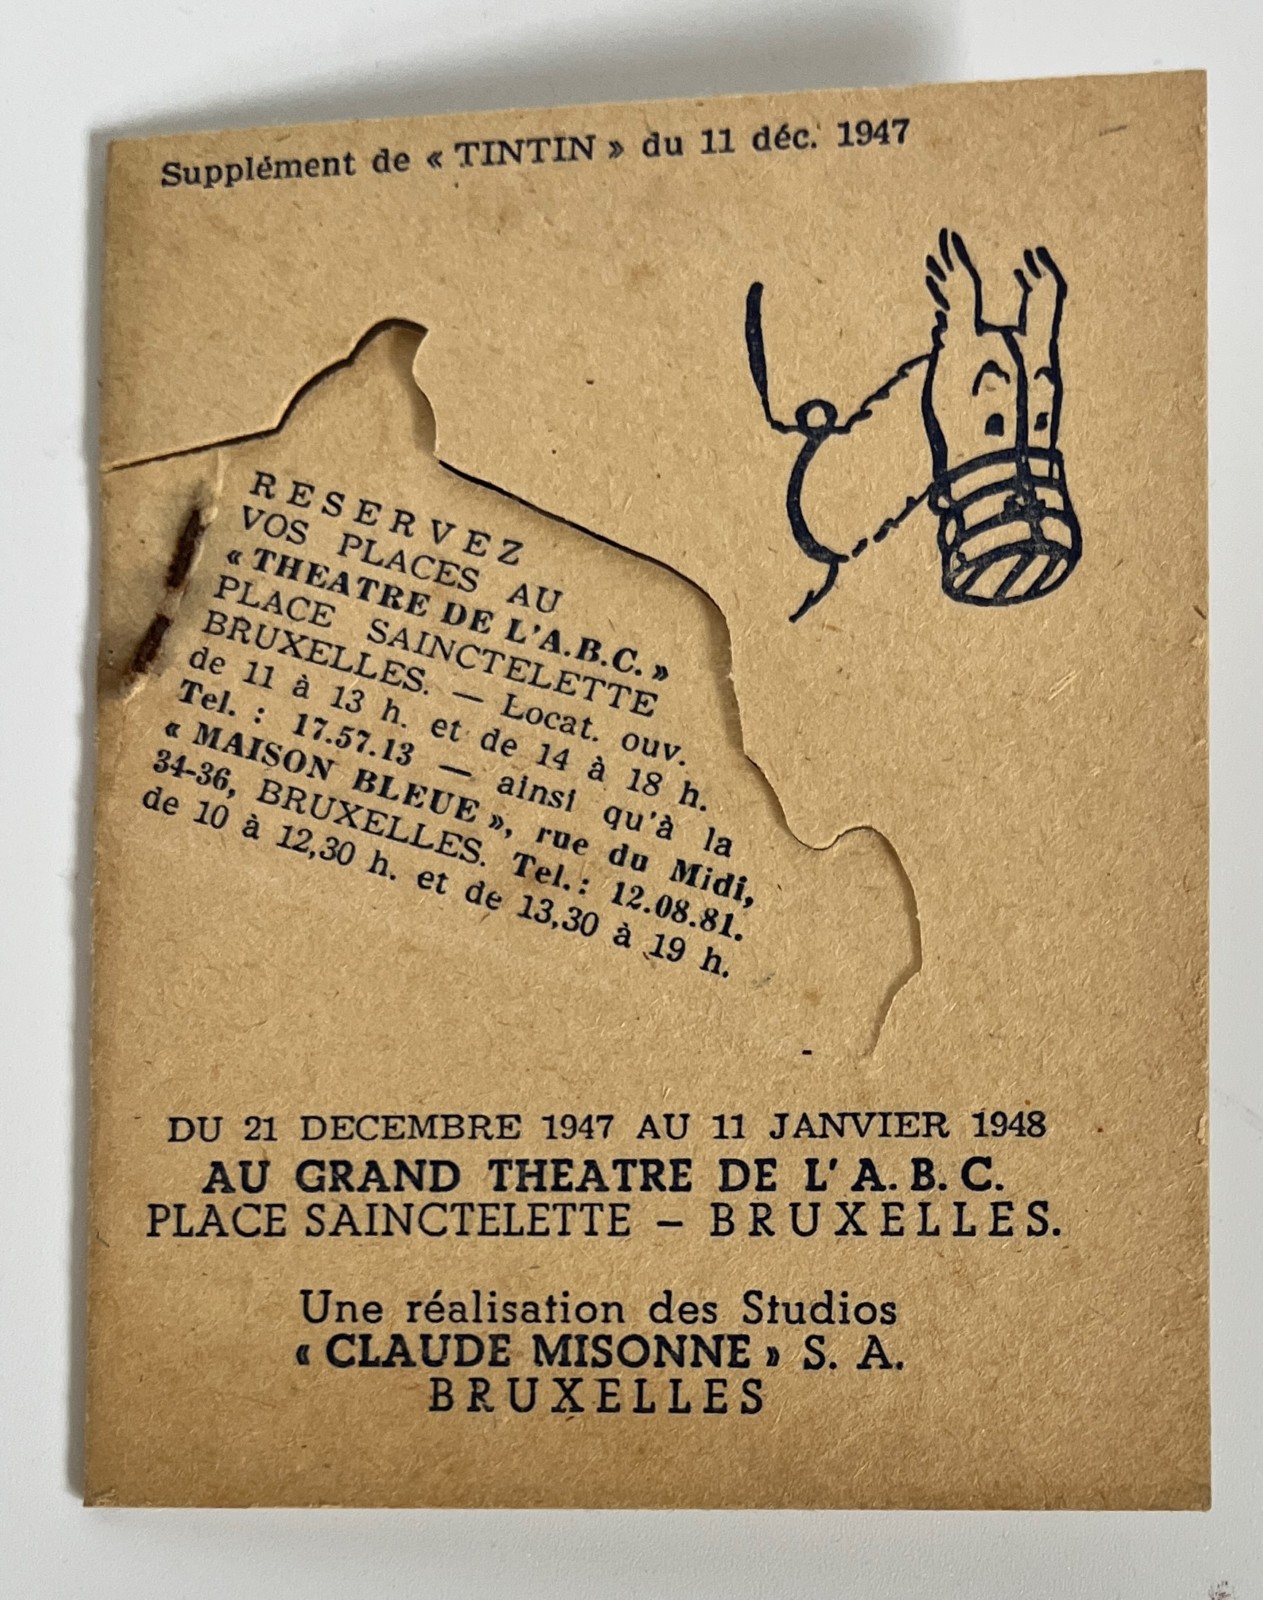 Supplément de « TINTIN » du 11 déc. 1947
RESERVEZ
VOS PLACES AU
« THEATRE DE L'A.B.C. »
PLACE SAINCTELETTE
BRUXELLES. — Locat. ouv.
de 11 à 13 h. et de 14 à 18 h.
Tel. : 17.57.13 — ainsi qu'à la
« MAISON BLEUE », rue du Midi,
34-36, BRUXELLES. Tel.: 12.08.81.
de 10 à 12,30 h. et de 13,30 à 19 h.
DU 21 DECEMBRE 1947 AU 11 JANVIER 1948
AU GRAND THEATRE DE L'A.B.C.
PLACE SAINCTELETTE – BRUXELLES.
Une réalisation des Studios
« CLAUDE MISONNE » S. A.
BRUXELLES